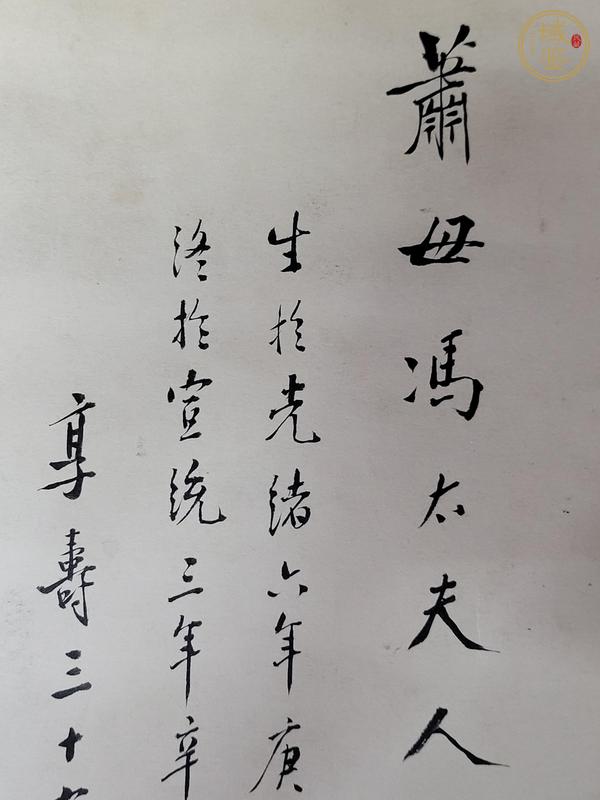 蕭母馮太夫人
生於光緒六年庚
終於宣統三年辛
享壽三十